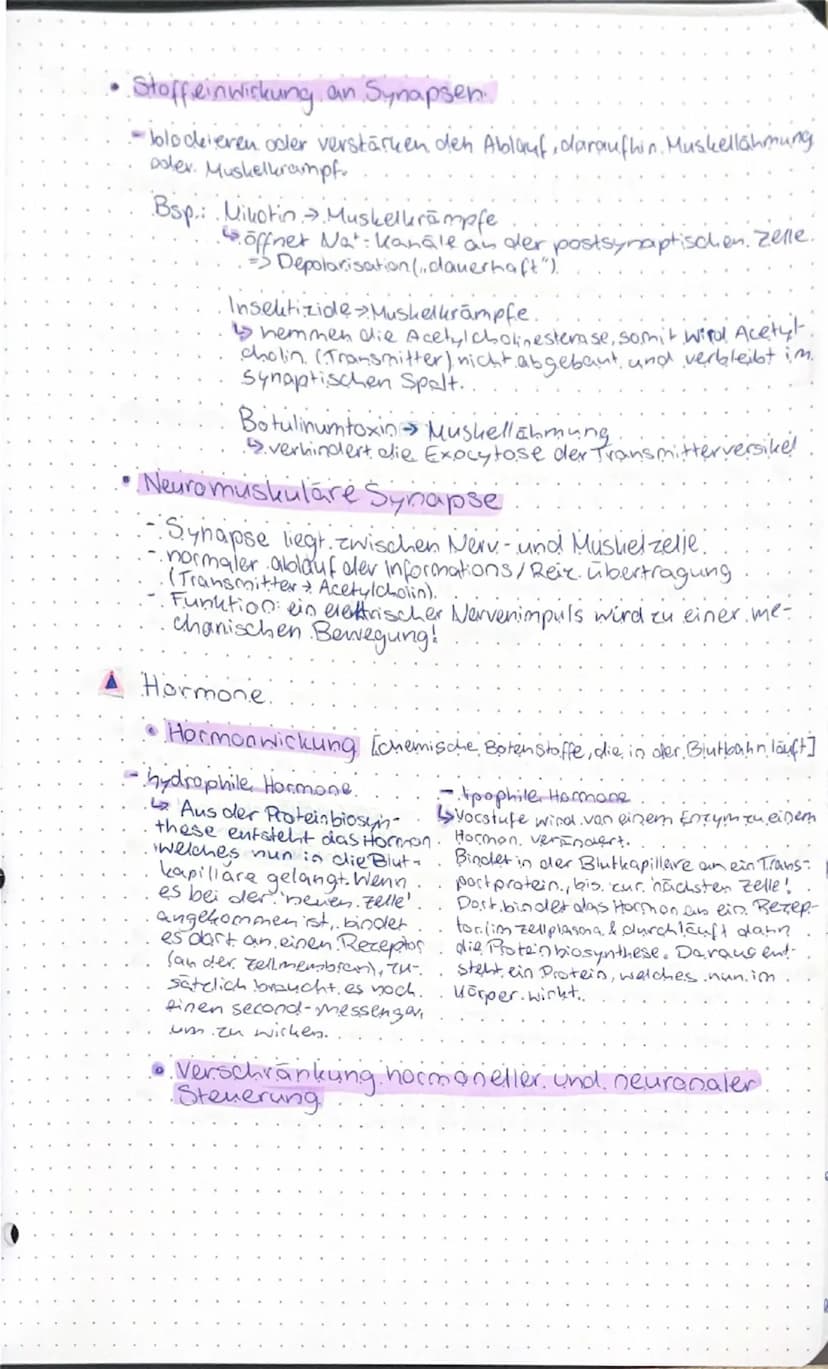 • Stoffeinwirkung an Synapsen
- blockieren oder verstärken den Ablauf, daraufhin Muskellähmung
oder Muskelkrampf.
Bsp.: Nikotin → Muskelkrämpfe
↳ öffnet Na⁺-Kanäle an der postsynaptischen Zelle.
=> Depolarisation („dauerhaft")
Insektizide → Muskelkrämpfe
↳ hemmen die Acetylcholinesterase, somit wird Acetyl-
cholin (Transmitter) nicht abgebaut und verbleibt im
synaptischen Spalt.
Botulinumtoxin → Muskellähmung
↳ verhindert die Exocytose der Transmitterversikel
• Neuromuskuläre Synapse
- Synapse liegt zwischen Nerv- und Muskelzelle.
- normaler ablauf der Informations/Reiz übertragung
(Transmitter → Acetylcholin).
- Funktion: ein elektrischer Nervenimpuls wird zu einer me-
chanischen Bewegung!
Hormone
• Hormonwirkung [chemische Botenstoffe, die in der Blutbahn läuft]
- hydrophile Hormone
↳ Aus der Proteinbiosyn-
these entsteht das Hormon
welches nun in die Blut-
kapillare gelangt. Wenn
es bei der 'neuen Zelle'
angekommen ist, bindet
es dort an einen Rezeptor
(an der Zellmembran), zu-
sätzlich braucht es noch
einen second-messenger,
um zu wirken.
- lipophile Hormone
↳ Vorstufe wird von einem Enzym zu einem
Hormon verändert.
Bindet in der Blutkapillare an ein Trans-
portprotein, bis zur 'nächsten Zelle'.
Dort bindet das Hormon an ein Rezep-
tor (im Zellplasma & durchläuft dann
die Proteinbiosynthese. Daraus ent-
steht ein Protein, welches nun im
Körper wirkt.
• Verschränkung hormoneller und neuronaler
Steuerung